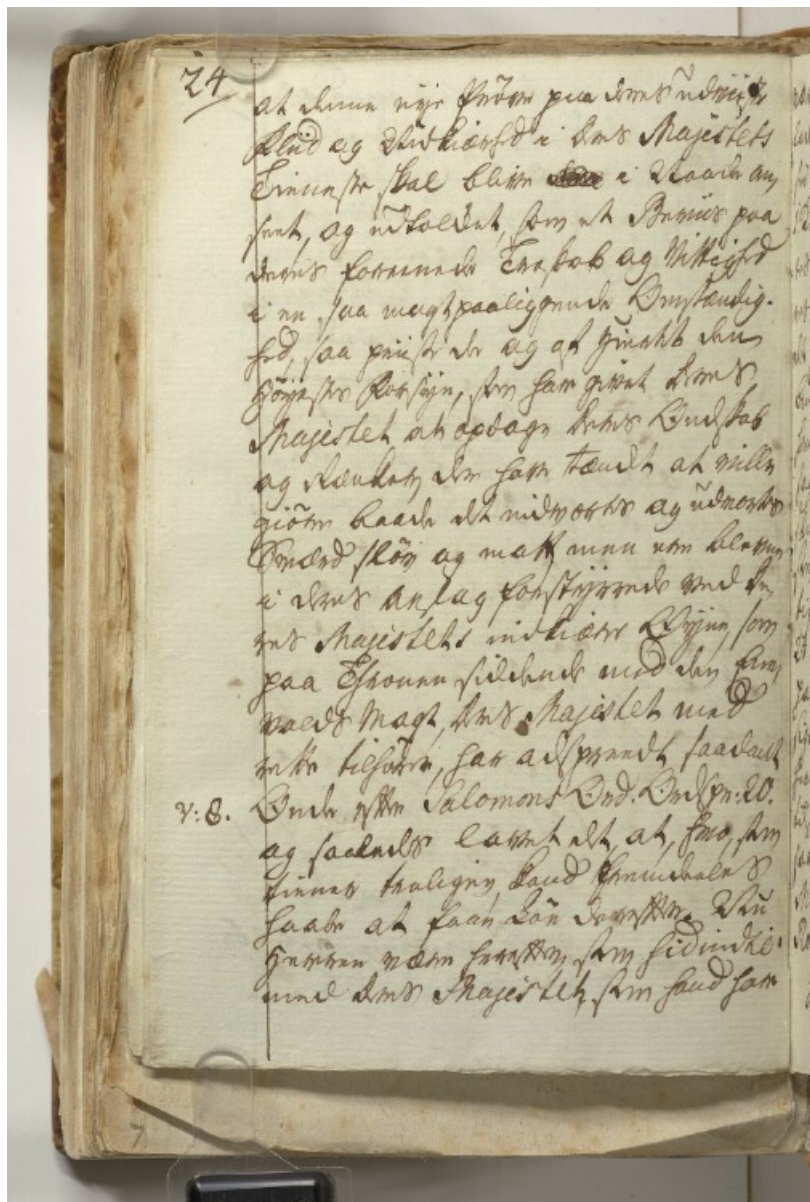 24
at denne nye Prøve paa deres udviiste
Flid og Nidkiærhed i Deres Majestets
Tieneste skal blive i Naade an
seet, og udtolket, som et Beviis paa
deres foreenede Troskab og Nittighed
i en saa magtpaaliggende Omstændig-
hed, saa priiste de og af Hiertet den
Høyeste Forsyn, som har givet Deres
Majestet at opdage deres Ondskab
og Rænker, der have tænckt at ville
giöre baade det indvortes og udvortes
Sværd slöv og matt men ere blevne
i deres Anslag forstyrrede ved De,
res Majestets nidkiære Øyne, som
paa Thronen siddende med den Ene,
volds Magt, Deres Majestet med
rette tilhører, har adspreedt saadant
v: 8. Onde efter Salomons Ord. Ordspr: 20.
og saaledes lavet det, at, hvo, som
tiener troeligen, kand fremdeeles
haabe at faae Løn derefter. Nu
Herren være herefter, som hidindtil
med Deres Majestet, som hand har